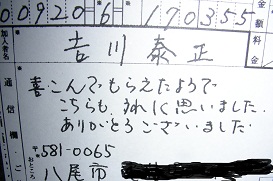 00920=6=170355
加入者名 吉川泰正 料金
通信欄・ご
喜こんでもらえたようで
こちらも、うれしく思いました
ありがとうございました
おところ 〒581-0065
八尾市